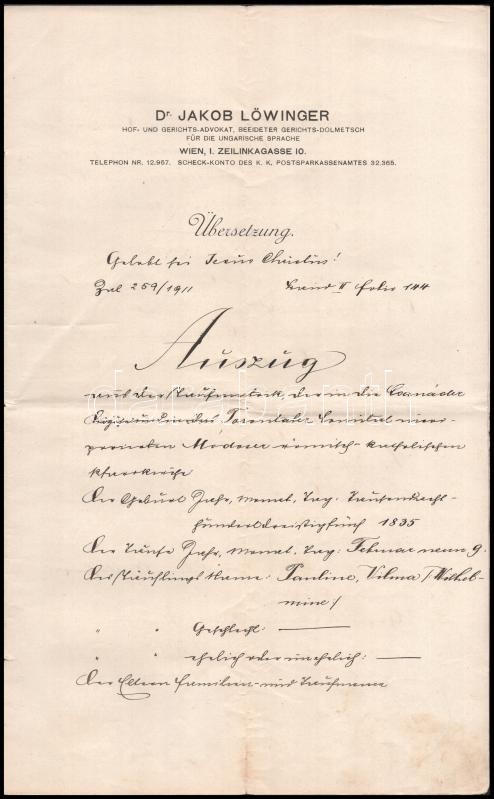 Dr. JAKOB LÖWINGER
HOF- UND GERICHTS-ADVOKAT, BEEIDETER GERICHTS-DOLMETSCH
FÜR DIE UNGARISCHE SPRACHE
WIEN, I. ZEILINKAGASSE 10.
TELEPHON NR. 12.957. SCHECK-KONTO DES K. K. POSTSPARKASSENAMTES 32.365.
Übersetzung.
Gelobt sei Jesus Christus!
Zal 259/1911 Band II folio 144
Auszug
aus der Taufmatrik, der in die Csanáder
Diözese und in das
Modoser römisch-katholischen
Pfarrkirche
Der Geburt Jahr, Monat, Tag: Tausendacht-
hundertdreissigfünf 1835
Der Taufe Jahr, Monat, Tag: Februar neun 9.
Des Täuflings Name: Pauline, Vilma /Wilhel-
mine/
" " Geschlecht: —
" " ehelich oder unehelich: —
Der Eltern Familien- und Taufname
darabanth